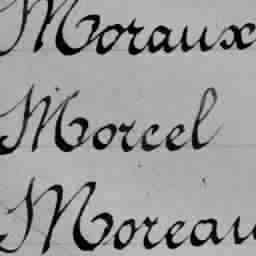 Moraux
Morcel
Moreau